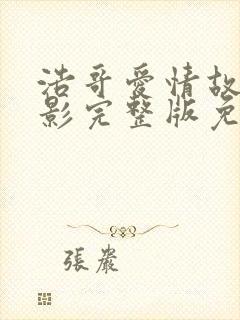 浩哥愛情故
影完整版免
張嚴